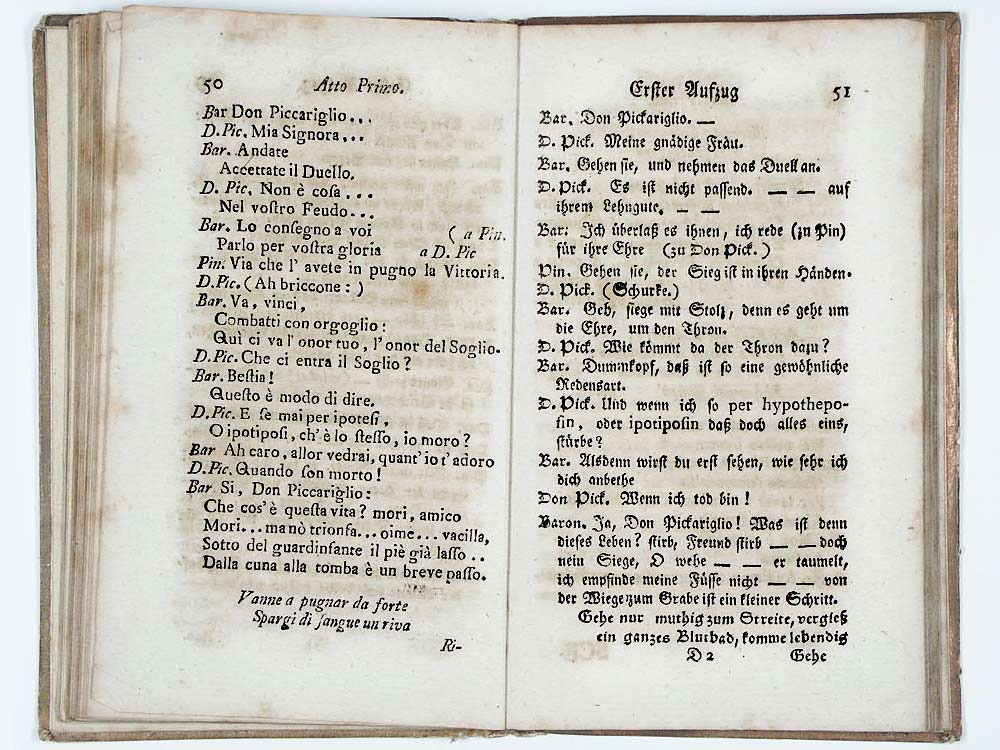 50 Atto Primo.
Bar Don Piccariglio...
D.Pic. Mia Signora...
Bar. Andate
Accettate il Duello.
D. Pic. Non è coſa...
Nel voſtro Feudo...
Bar. Lo conſegno a voi ( a Pin.
Parlo per voſtra gloria a D. Pic
Pin. Via che l' avete in pugno la Vittoria.
D.Pic. (Ah briccone:)
Bar. Va, vinci,
Combatti con orgoglio:
Quì ci va l' onor tuo, l'onor del Soglio.
D.Pic. Che ci entra il Soglio?
Bar. Beſtia!
Queſto è modo di dire.
D.Pic. E ſe mai per ipoteſi,
O ipotipoſi, ch' è lo ſteſſo, io moro?
Bar Ah caro, allor vedrai, quant' io t'adoro
D.Pic. Quando ſon morto!
Bar Si, Don Piccariglio:
Che cos' è queſta vita? mori, amico
Mori... ma nò trionfa... oime... vacilla,
Sotto del guardinfante il piè già laſſo..
Dalla cuna alla tomba è un breve paſſo.
Vanne a pugnar da forte
Spargi di ſangue un riva
Ri-
Erſter Aufzug 51
Bar. Don Pickariglio. —
D. Pick. Meine gnädige Fräu.
Bar. Gehen ſie, und nehmen das Duell an.
D. Pick. Es iſt nicht paſſend. — — auf
ihrem Lehngute. — —
Bar: Ich überlaß es ihnen, ich rede (zu Pin)
für ihre Ehre (zu Don Pick.)
Pin. Gehen ſie, der Sieg iſt in ihren Händen.
D. Pick. (Schurke.)
Bar. Geh, ſiege mit Stolz, denn es geht um
die Ehre, um den Thron.
D. Pick. Wie kömmt da der Thron dazu?
Bar. Dummkopf, daß iſt ſo eine gewöhnliche
Redensart.
D. Pick. Und wenn ich ſo per hypothepo-
ſin, oder ipotipoſin daß doch alles eins,
ſtürbe?
Bar. Alsdenn wirſt du erſt ſehen, wie ſehr ich
dich anbethe
Don Pick. Wenn ich tod bin!
Baron. Ja, Don Pickariglio! Was iſt denn
dieſes Leben? ſtirb, Freund ſtirb — — doch
nein Siege, O wehe — — er taumelt,
ich empfinde meine Füſſe nicht — — von
der Wiege zum Grabe iſt ein kleiner Schritt.
Gehe nur muthig zum Streite, vergieß
ein ganzes Blutbad, komme lebendig
D 2 Gehe